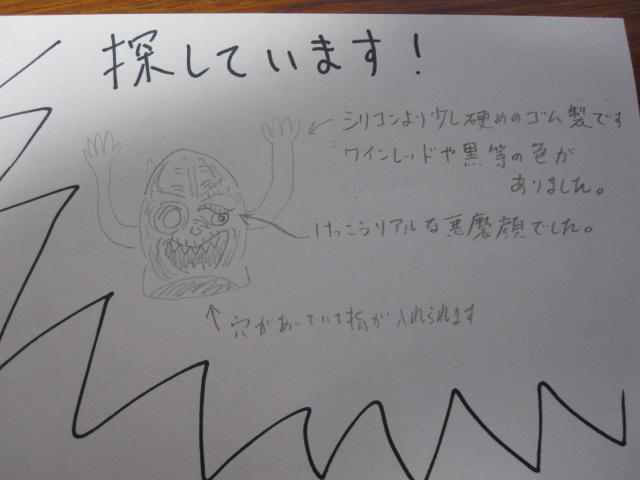 探しています！
シリコンより少し硬めのゴム製です
ワインレッドや黒等の色が
ありました。
けっこうリアルな悪魔顔でした。
穴があいていて指が入れられます